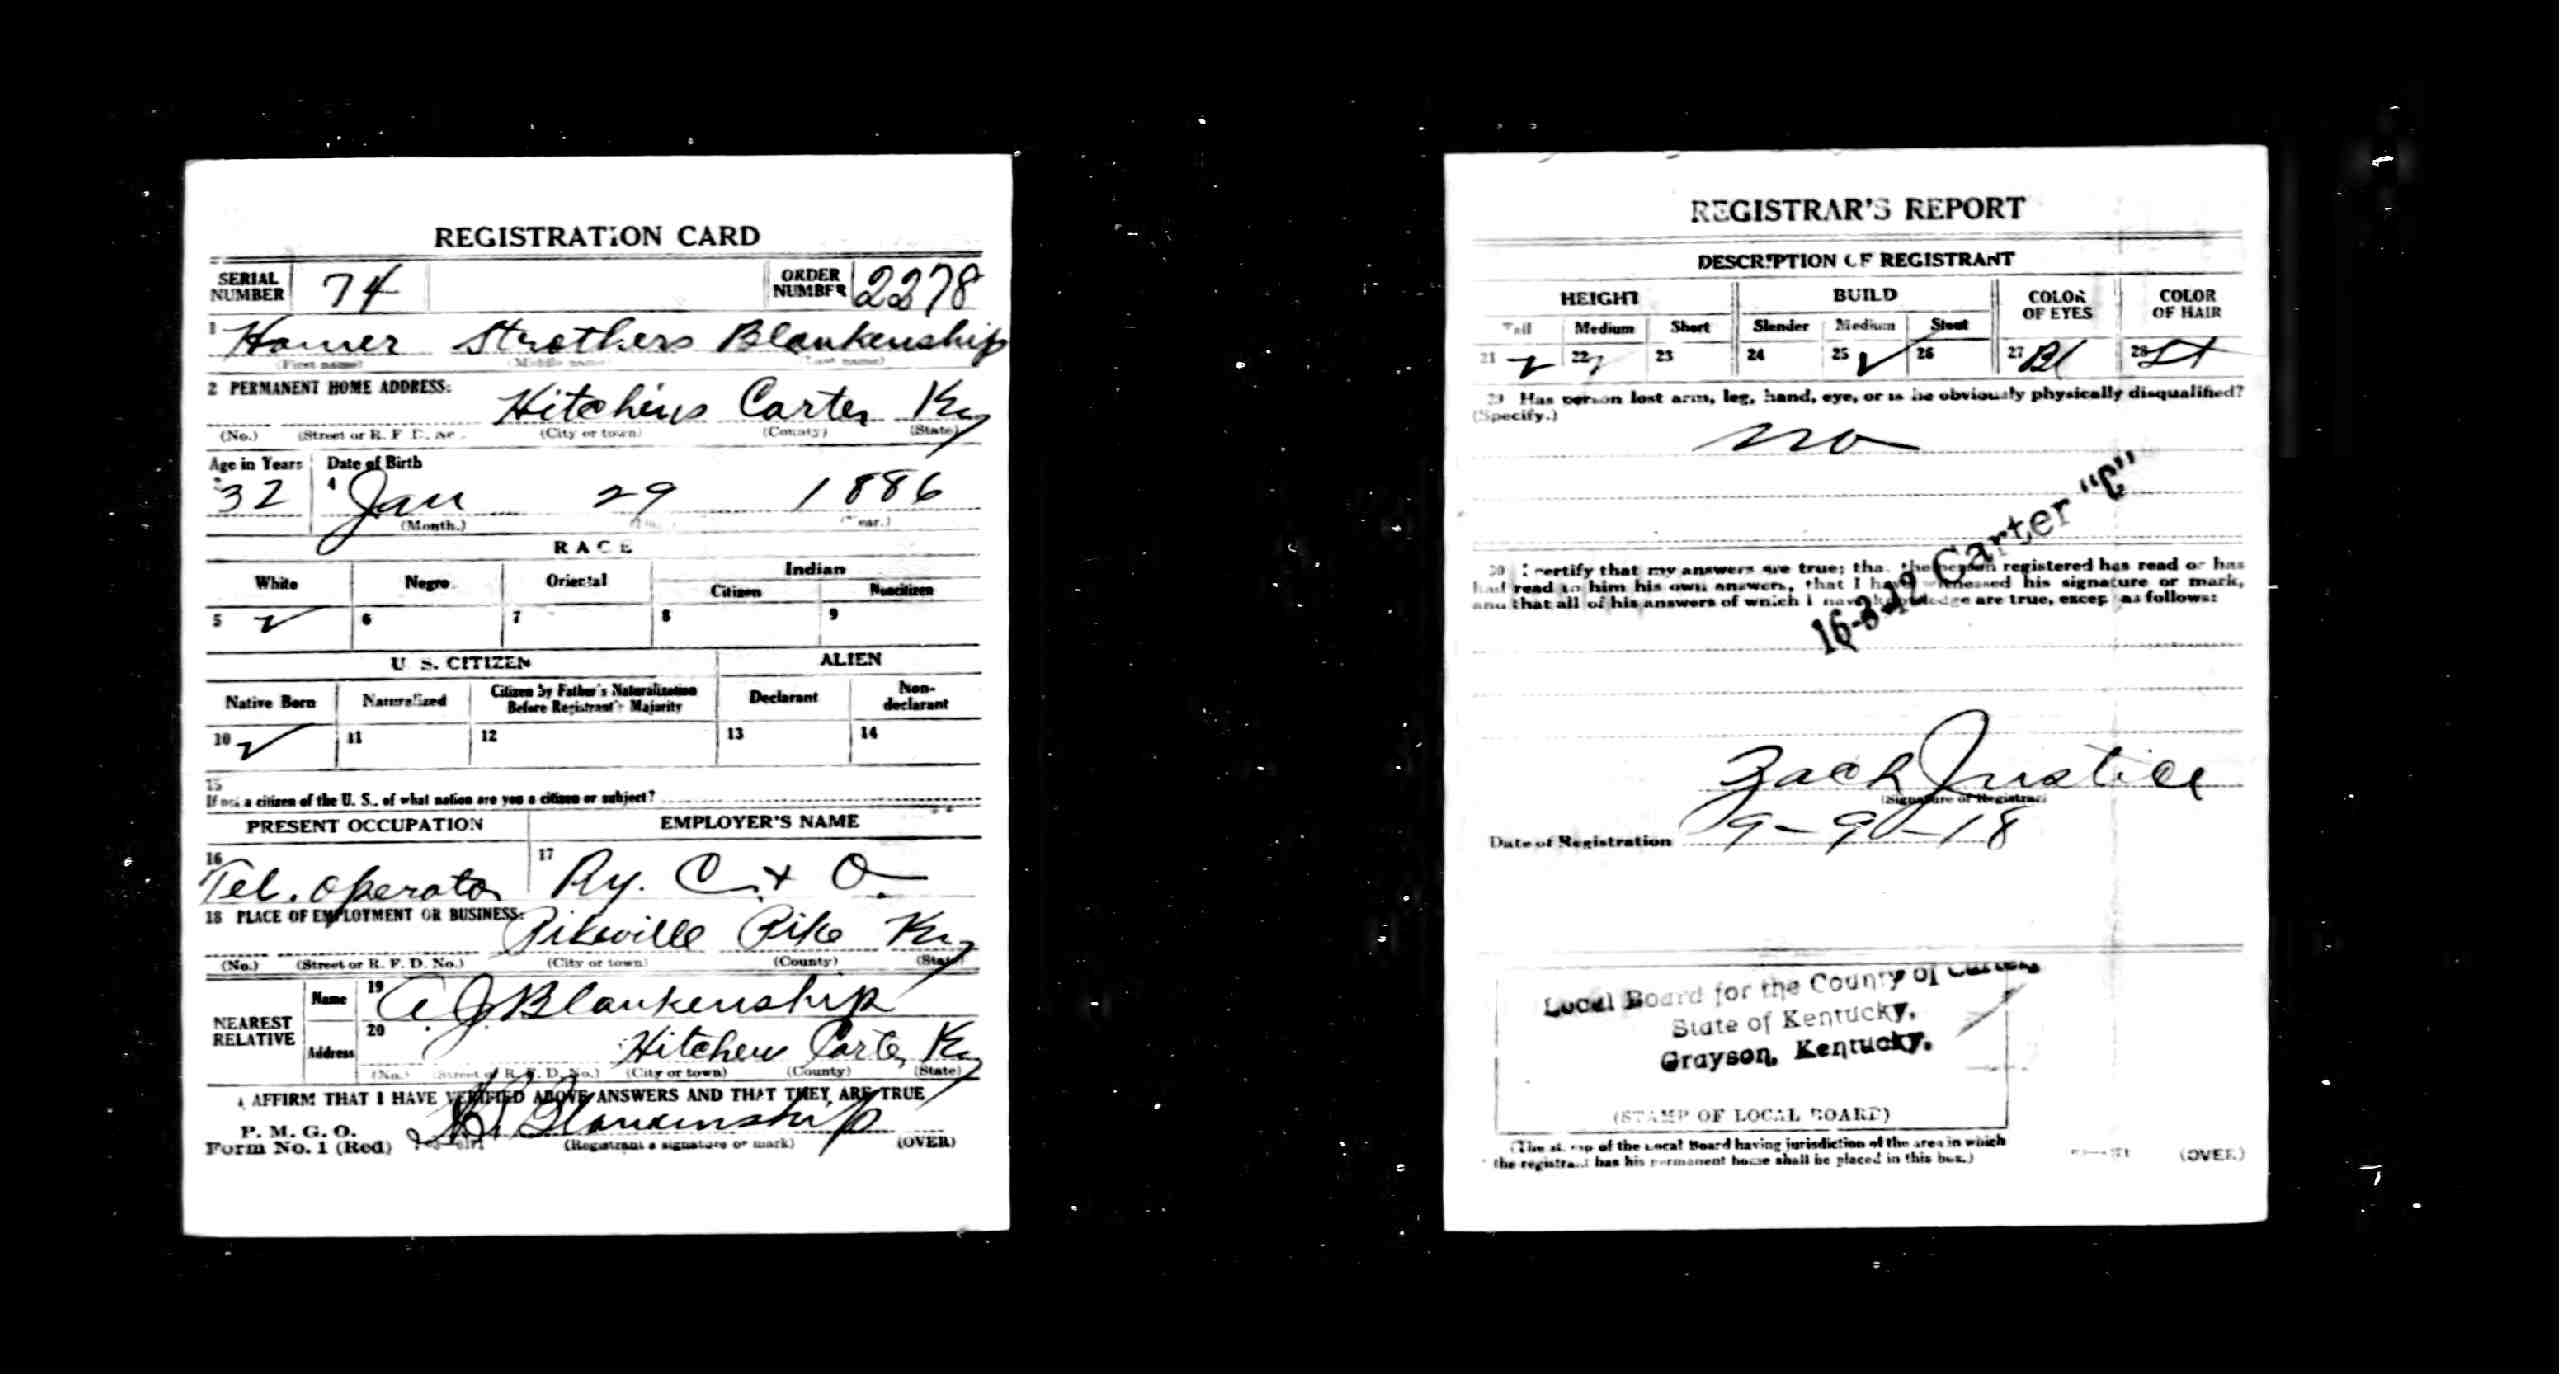 REGISTRATION CARD
SERIAL NUMBER 74 ORDER NUMBER 2278
1 Homer Strothers Blankenship
(First name) (Middle name) (Last name)
2 PERMANENT HOME ADDRESS:
Hitchins Carter Ky
(No.) (Street or R. F. D. No.) (City or town) (County) (State)
Age in Years Date of Birth
3 32 4 Jan 29 1886
(Month.) (Day.) (Year.)
RACE
White Negro Oriental Indian
Citizen Noncitizen
5 ✓ 6 7 8 9
U. S. CITIZEN ALIEN
Native Born Naturalized Citizen by Father's Naturalization Before Registrant's Majority Declarant Non-declarant
10 ✓ 11 12 13 14
15
If not a citizen of the U. S., of what nation are you a citizen or subject?
PRESENT OCCUPATION EMPLOYER'S NAME
16 Tel. operator 17 Ry. C. + O.
18 PLACE OF EMPLOYMENT OR BUSINESS:
Pikeville Pike Ky
(No.) (Street or R. F. D. No.) (City or town) (County) (State)
NEAREST RELATIVE
Name 19 J Blankenship
Address 20 Hitchins Carter Ky
(No.) (Street or R. F. D. No.) (City or town) (County) (State)
I AFFIRM THAT I HAVE VERIFIED ABOVE ANSWERS AND THAT THEY ARE TRUE
P. M. G. O.
Form No. 1 (Red) Blankenship
(Registrant's signature or mark) (OVER)
REGISTRAR'S REPORT
DESCRIPTION OF REGISTRANT
HEIGHT BUILD COLOR OF EYES COLOR OF HAIR
Tall Medium Short Slender Medium Stout
21 ✓ 22 23 24 25 ✓ 26 27 Bl 28 Lt
29 Has person lost arm, leg, hand, eye, or is he obviously physically disqualified?
(Specify.)
no
30 I certify that my answers are true; that the person registered has read or has
had read to him his own answers, that I have witnessed his signature or mark,
and that all of his answers of which I have knowledge are true, except as follows:
16-3-12 Carter "C"
Zach Justice
(Signature of Registrar)
Date of Registration 9-9-18
Local Board for the County of Carter,
State of Kentucky,
Grayson, Kentucky.
(STAMP OF LOCAL BOARD)
(The stamp of the Local Board having jurisdiction of the area in which
the registrant has his permanent home shall be placed in this box.)
(OVER)